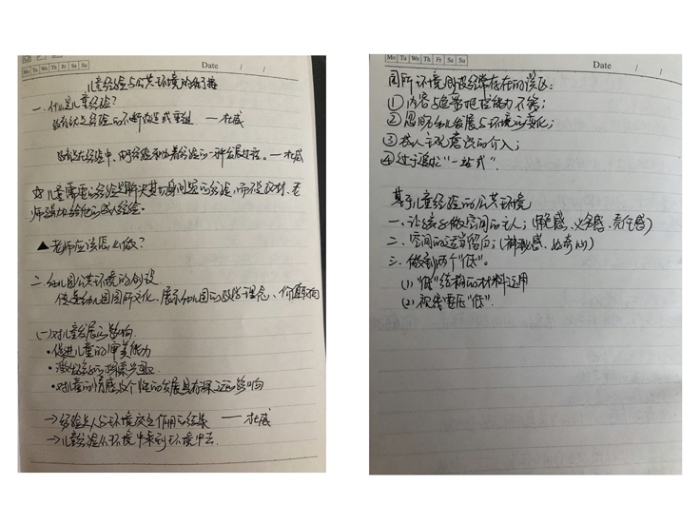 Mo Tu We Th Fr Sa Su
Date / /
儿童经验与公共环境的
一.什么是儿童经验?
教育就是经验的不断改造或重组 ——杜威
教育是在经验中、由于经验和为着经验的一种发展过程。——杜威
儿童需要的经验是解决其切身问题的经验,而不是教材、老
师强加给他的成人经验。
▲老师应该怎么做?
二.幼儿园公共环境的创设
传递幼儿园园所文化、展示幼儿园的教学理念、价值取向
(一)对儿童发展的影响
·促进儿童的审美能力
·激发孩子的探索兴趣
·对儿童的情感及个性的发展具有深远的影响
→经验是人与环境交互作用的结果 ——杜威
→儿童经验从环境中来到环境中去.
Mo Tu We Th Fr Sa Su
Date / /
园所环境创设经常存在的误区:
①内容与色彩把控能力不够;
②忽略幼儿发展与环境的变化;
③成人主观意识的介入;
④过于追求“一站式”.
基于儿童经验的公共环境
一.让孩子做空间的主人;(归宿感、安全感、责任感)
二.空间的适当留白;(神秘感、好奇心)
三.做到两个“低”。
(1)“低”结构的材料运用
(2)视线要压“低”.